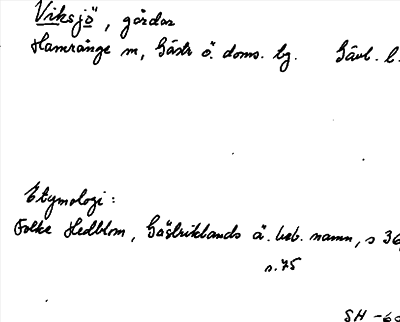 Viksjö, gårdar
Hamrånge sn, Gästr ö. doms. tg. Gävl. l.
Etymologi:
Folke Hedblom, Gästriklands ä. beb. namn, s 36,
s. 75
SH -60